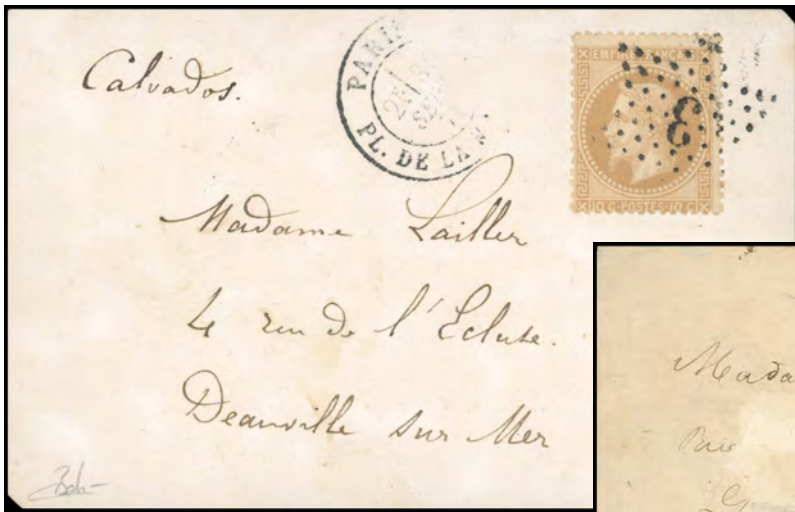 Calvados.
PARIS
2E
PL. DE LA
EMPIRE FRANÇAIS
3
10 C. POSTES 10 C.
Madame Lailler
4 rue de l'Ecluse.
Deauville sur Mer
Mada